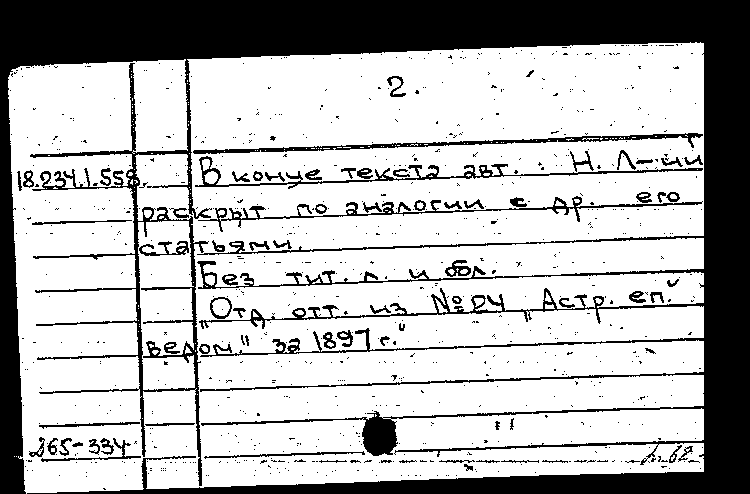 2.
18.234.1.558. В конце текста авт. : Н. Л-ий
раскрыт по аналогии с др. его
статьями.
Без тит. л. и обл.
„Отд. отт. из №24 „Астр. еп.
ведом." за 1897 г."
265-334